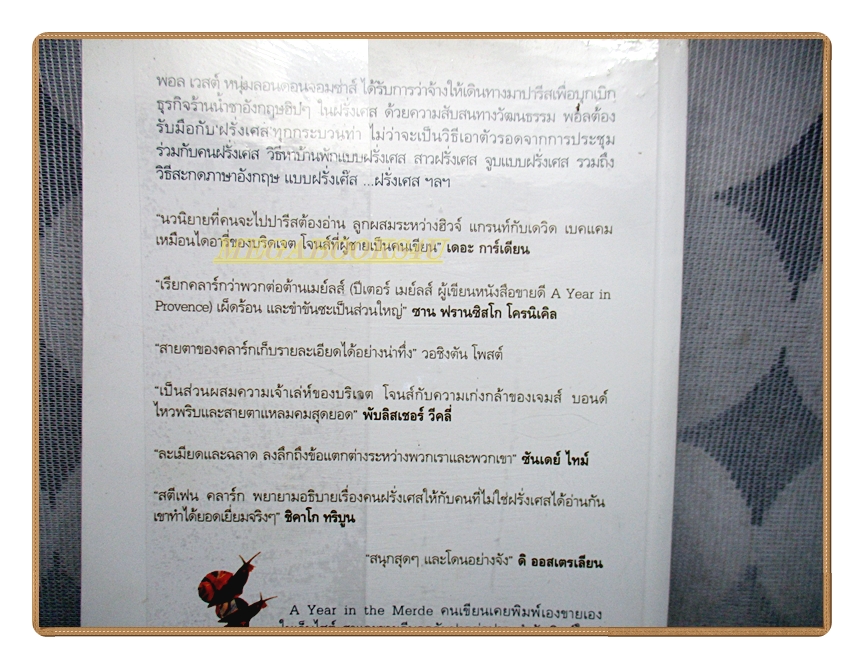 พอล เวสต์ หนุ่มลอนดอนจอมซ่าส์ ได้รับการว่าจ้างให้เดินทางมาปารีสเพื่อบุกเบิก
ธุรกิจร้านน้ำชาอังกฤษฮิปๆ ในฝรั่งเศส ด้วยความสับสนทางวัฒนธรรม พอลต้อง
รับมือกับฝรั่งเศสทุกกระบวนท่า ไม่ว่าจะเป็นวิธีเอาตัวรอดจากการประชุม
ร่วมกับคนฝรั่งเศส วิธีหาบ้านพักแบบฝรั่งเศส สาวฝรั่งเศส จูบแบบฝรั่งเศส รวมถึง
วิธีสะกดภาษาอังกฤษ แบบฝรั่งเศ๊ส ...ฝรั่งเศส ฯลฯ
"นวนิยายที่คนจะไปปารีสต้องอ่าน ลูกผสมระหว่างฮิวจ์ แกรนท์กับเดวิด เบคแคม
เหมือนไดอารี่ของบริดเจต โจนส์ที่ผู้ชายเป็นคนเขียน" เดอะ การ์เดียน
MEGABOOKS4U
"เรียกคลาร์กว่าพวกต่อต้านเมย์ลส์ (ปีเตอร์ เมย์ลส์ ผู้เขียนหนังสือขายดี A Year in
Provence) เผ็ดร้อน และขำขันซะเป็นส่วนใหญ่" ซาน ฟรานซิสโก โครนิเคิล
"สายตาของคลาร์กเก็บรายละเอียดได้อย่างน่าทึ่ง" วอชิงตัน โพสต์
"เป็นส่วนผสมความเจ้าเล่ห์ของบริเจต โจนส์กับความเก่งกล้าของเจมส์ บอนด์
ไหวพริบและสายตาแหลมคมสุดยอด" พับลิสเชอร์ วีคลี่
"ละเมียดและฉลาด ลงลึกถึงข้อแตกต่างระหว่างพวกเราและพวกเขา" ซันเดย์ ไทม์
"สตีเฟน คลาร์ก พยายามอธิบายเรื่องคนฝรั่งเศสให้กับคนที่ไม่ใช่ฝรั่งเศสได้อ่านกัน
เขาทำได้ยอดเยี่ยมจริงๆ" ชิคาโก ทริบูน
"สนุกสุดๆ และโดนอย่างจัง" ดิ ออสเตรเลียน
A Year in the Merde คนเขียนเคยพิมพ์เองขายเอง